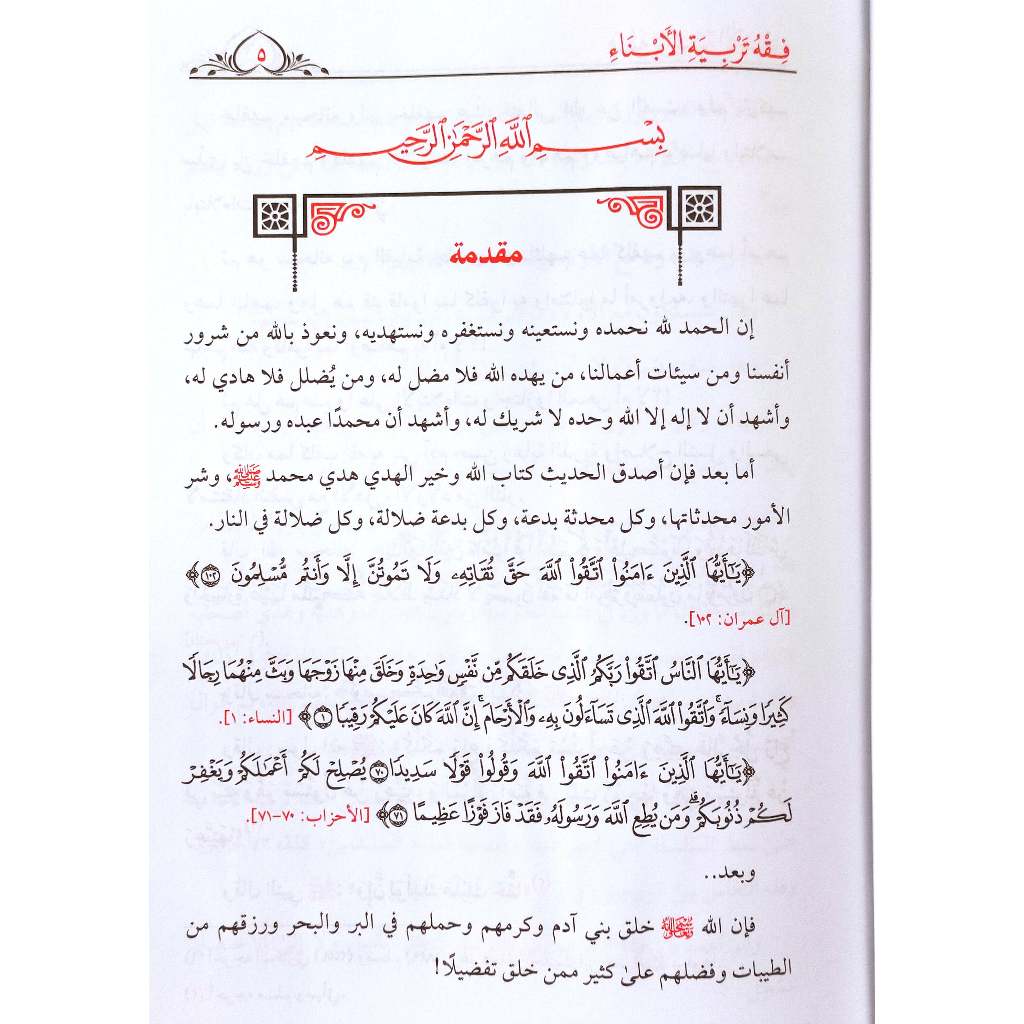 فِقْهُ تَرْبِيَةِ الأَبْنَاءِ
٥
بِسْمِ ٱللَّهِ ٱلرَّحْمَٰنِ ٱلرَّحِيمِ
مقدمة
إن الحمد لله نحمده ونستعينه ونستغفره ونستهديه، ونعوذ بالله من شرور
أنفسنا ومن سيئات أعمالنا، من يهده الله فلا مضل له، ومن يُضلل فلا هادي له،
وأشهد أن لا إله إلا الله وحده لا شريك له، وأشهد أن محمدًا عبده ورسوله.
أما بعد فإن أصدق الحديث كتاب الله وخير الهدي هدي محمد ﷺ، وشر
الأمور محدثاتها، وكل محدثة بدعة، وكل بدعة ضلالة، وكل ضلالة في النار.
﴿يَٰٓأَيُّهَا ٱلَّذِينَ ءَامَنُوا۟ ٱتَّقُوا۟ ٱللَّهَ حَقَّ تُقَاتِهِۦ وَلَا تَمُوتُنَّ إِلَّا وَأَنتُم مُّسْلِمُونَ ١٠٢﴾
[آل عمران: ١٠٢].
﴿يَٰٓأَيُّهَا ٱلنَّاسُ ٱتَّقُوا۟ رَبَّكُمُ ٱلَّذِى خَلَقَكُم مِّن نَّفْسٍ وَٰحِدَةٍ وَخَلَقَ مِنْهَا زَوْجَهَا وَبَثَّ مِنْهُمَا رِجَالًا
كَثِيرًا وَنِسَآءً ۚ وَٱتَّقُوا۟ ٱللَّهَ ٱلَّذِى تَسَآءَلُونَ بِهِۦ وَٱلْأَرْحَامَ ۚ إِنَّ ٱللَّهَ كَانَ عَلَيْكُمْ رَقِيبًا ١﴾ [النساء: ١].
﴿يَٰٓأَيُّهَا ٱلَّذِينَ ءَامَنُوا۟ ٱتَّقُوا۟ ٱللَّهَ وَقُولُوا۟ قَوْلًا سَدِيدًا ٧٠ يُصْلِحْ لَكُمْ أَعْمَٰلَكُمْ وَيَغْفِرْ
لَكُمْ ذُنُوبَكُمْ ۗ وَمَن يُطِعِ ٱللَّهَ وَرَسُولَهُۥ فَقَدْ فَازَ فَوْزًا عَظِيمًا ٧١﴾ [الأحزاب: ٧٠-٧١].
وبعد..
فإن الله سبحانه وتعالى خلق بني آدم وكرمهم وحملهم في البر والبحر ورزقهم من
الطيبات وفضلهم علىٰ كثير ممن خلق تفضيلًا!